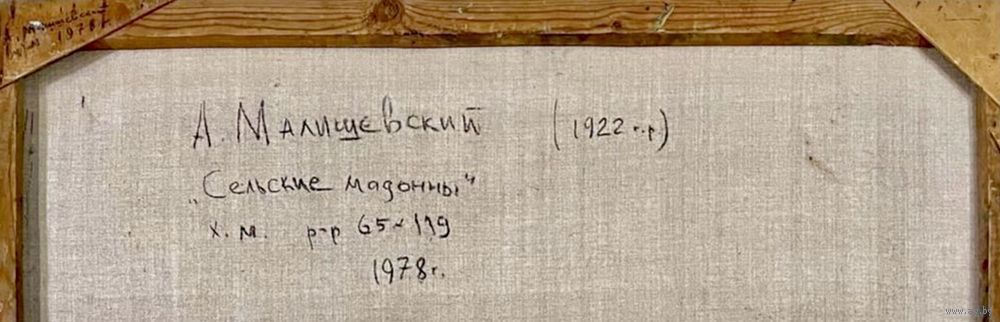 А. Малишевский
1978 г.
А. Малишевский (1922 г.р)
„Сельские мадонны"
х.м. р-р 65×119
1978г.